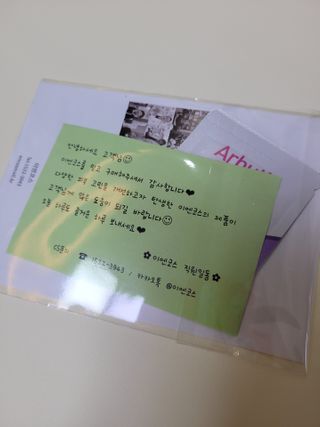 Arbu
안녕하세요 고객님☺
이엔코스를 믿고 구매해주셔서 감사합니다♥
다양한 피부 고민을 개선하고자 탄생한 이엔코스의 제품이
고객님께 많은 도움이 되길 바랍니다☺
오늘 하루도 즐거운 하루 보내세요♥
✿이엔코스 직원일동✿
CS문의
☎ 1522-3963 / 카카오톡 @이엔코스